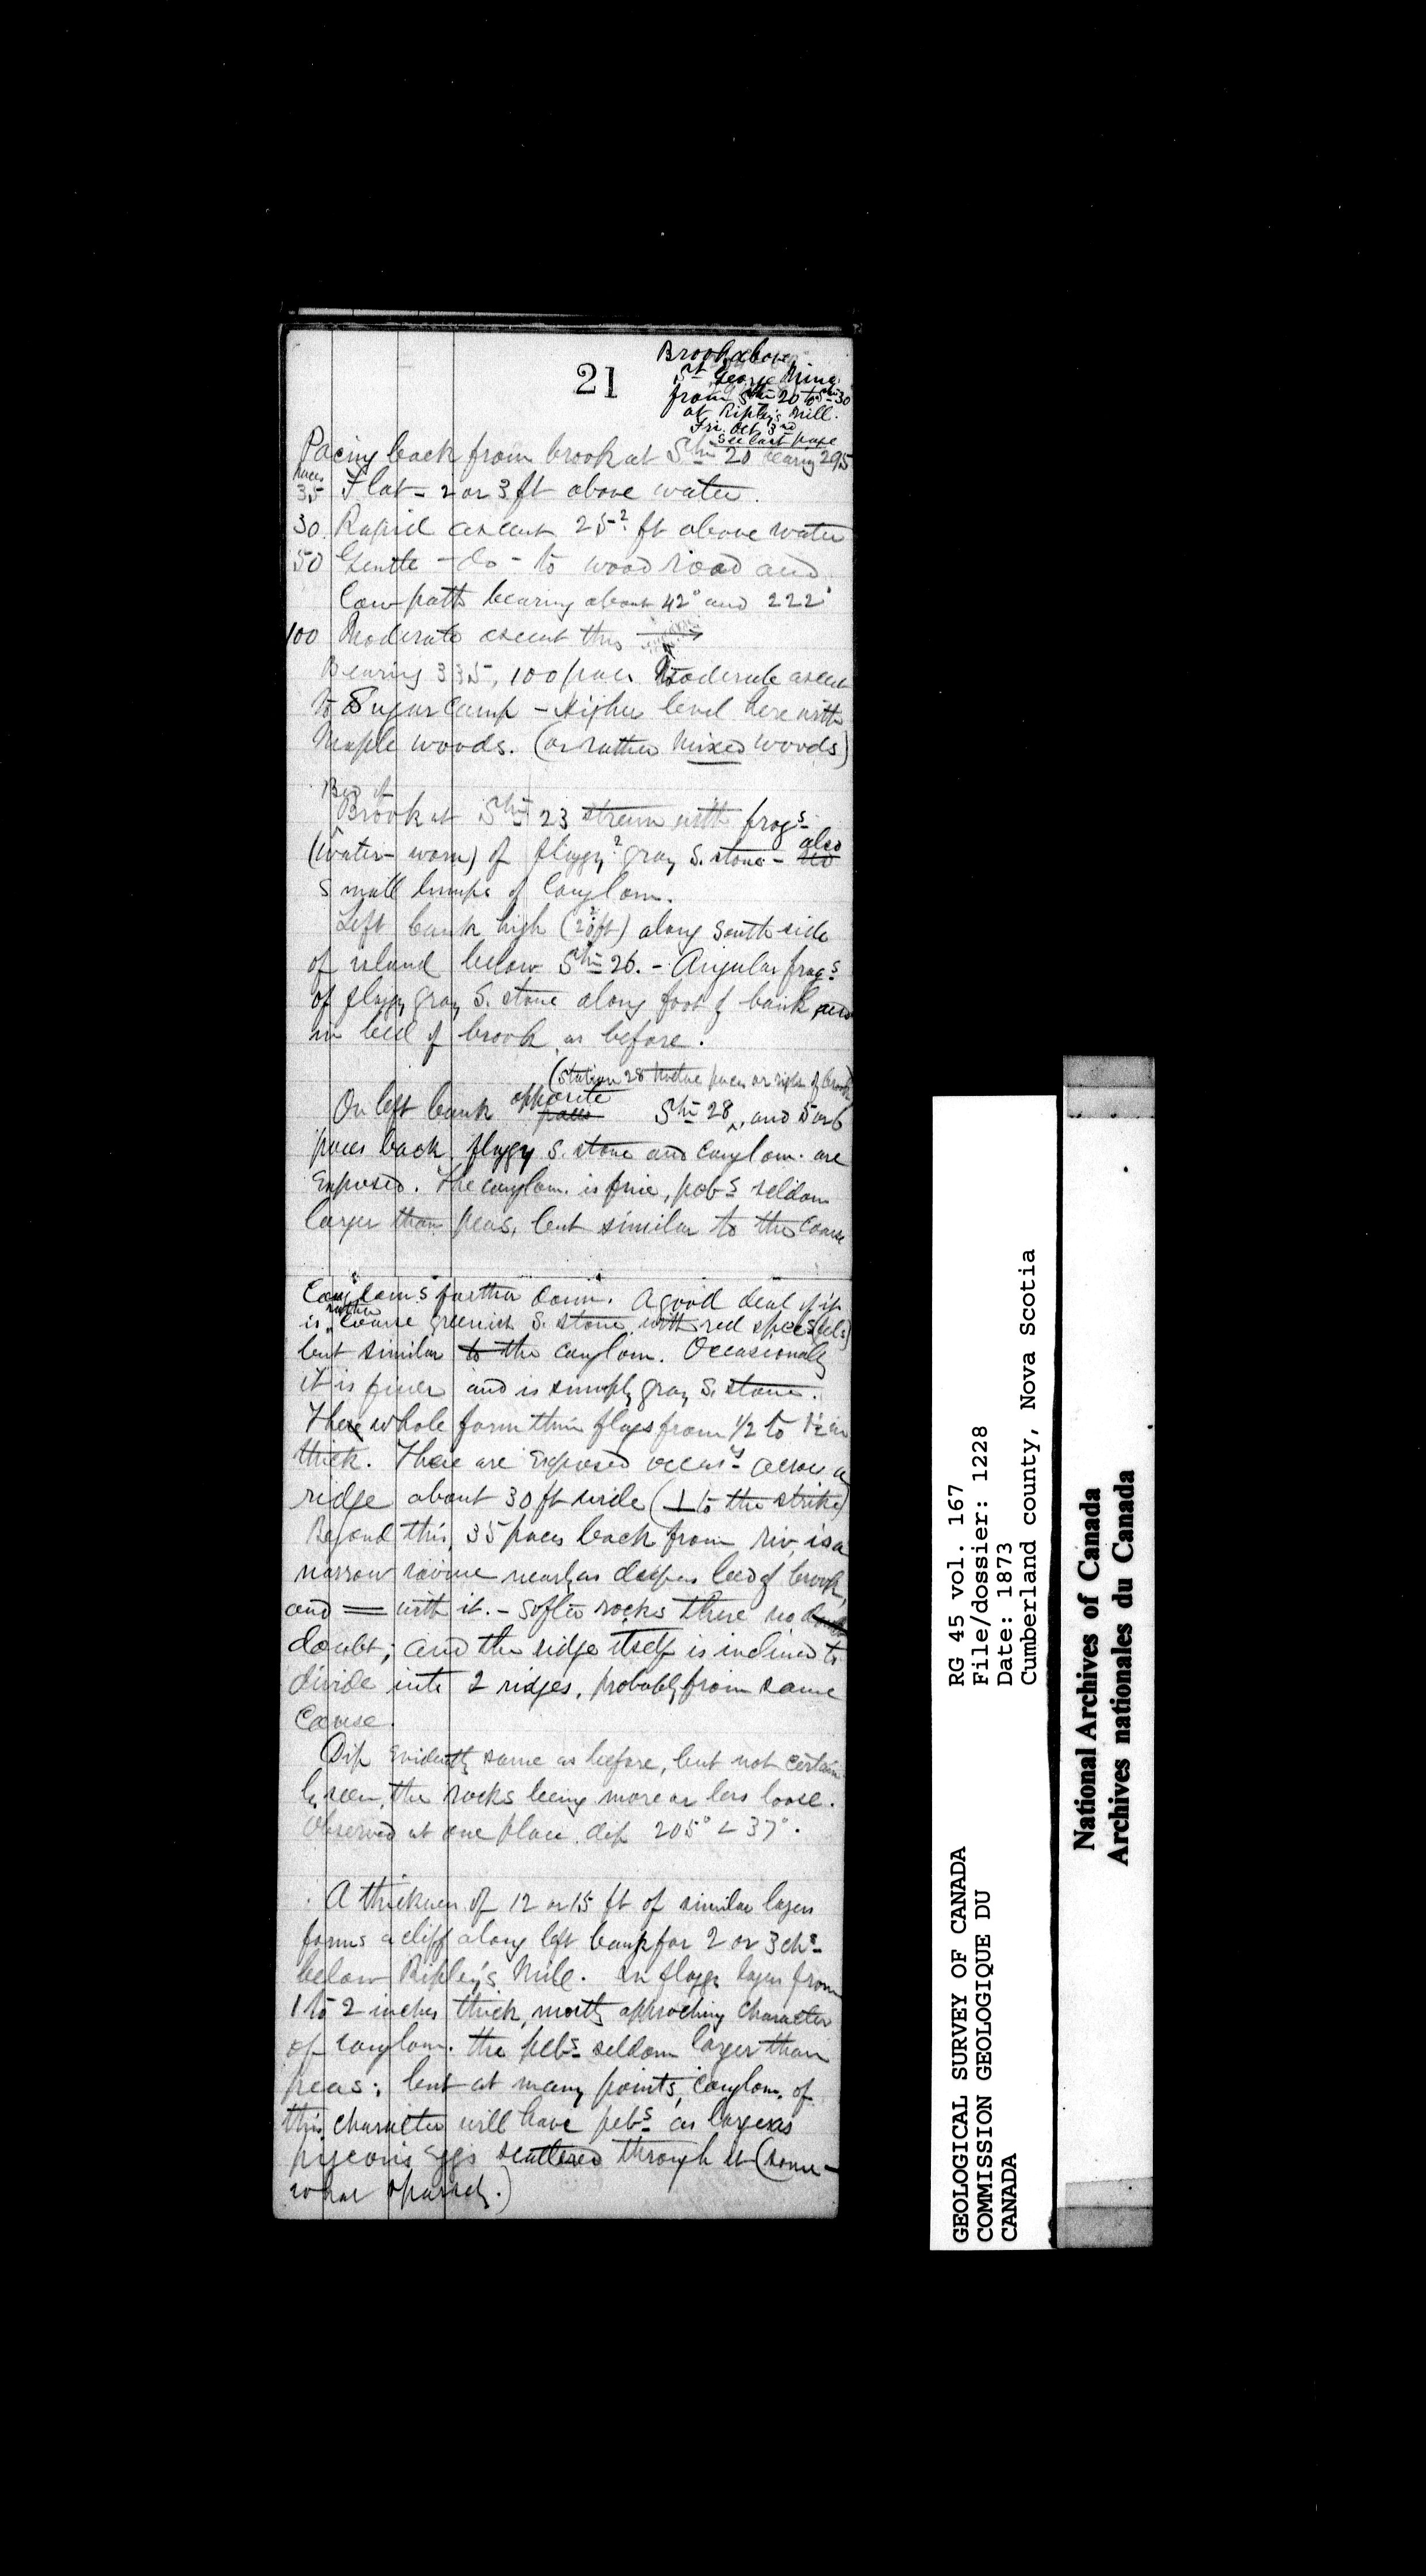 21
Brook above
St George Mine
from Stn 20 to Stn 30
at Ripley's Mill.
Fri. Oct 3rd
see last page
Pacing back from brook at Stn 20 bearing 295
paces
35 Flat - 2 or 3 ft above water.
30. Rapid ascent 25? ft above water
50 Gentle - do - to wood road and
Cow path bearing about 42° and 222°
100 Moderate ascent this
Bearing 335, 100 paces Moderate ascent
to Sugar Camp - Higher level here with
Maple woods. (or rather mixed woods)
Bed of
Brook at Stn 23 strewn with frags
(water-worn) of flaggy? gray S. stone - also
small lumps of Conglom.
Left bank high (20? ft) along South side
of island below Stn 26. - Angular frags
of flaggy gray S. stone along foot of bank and
in bed of brook, as before.
(Station 28 twelve paces on right of brook)
On left bank opposite Stn 28, and 5 or 6
paces back flaggy S. stone and Conglom. are
Exposed. The conglom. is fine, pebs seldom
larger than peas, but similar to the Coarse
Congloms further down. A good deal of it
is rather coarse greenish S. stone with red specs
but similar to the conglom. Occasionally
it is finer and is simply gray S. stone.
These whole form thin flags from 1/2 to 1 1/2 in
thick. These are Exposed occasy across a
ridge about 30 ft wide (⊥ to the strike)
Beyond this, 35 paces back from riv, is a
narrow ravine nearly as deep as bed of brook,
and = with it. - Softer rocks there no
doubt; and the ridge itself is inclined to
divide into 2 ridges, probably from same
Cause.
Dip Evidently same as before, but not certain
ly seen, the rocks being more or less loose.
Observed at one place dip 205° < 37°.
A thickness of 12 or 15 ft of similar layers
forms a cliff along left bank for 2 or 3 chs
below Ripley's Mill. In flaggy layers from
1 to 2 inches thick, mostly approching character
of conglom. the pebs seldom larger than
peas; but at many points, conglom. of
this character will have pebs as large as
pigeon's Eggs scattered through it (some-
what sparsely.)
GEOLOGICAL SURVEY OF CANADA
COMMISSION GEOLOGIQUE DU
CANADA
RG 45 vol. 167
File/dossier: 1228
Date: 1873
Cumberland county, Nova Scotia
National Archives of Canada
Archives nationales du Canada